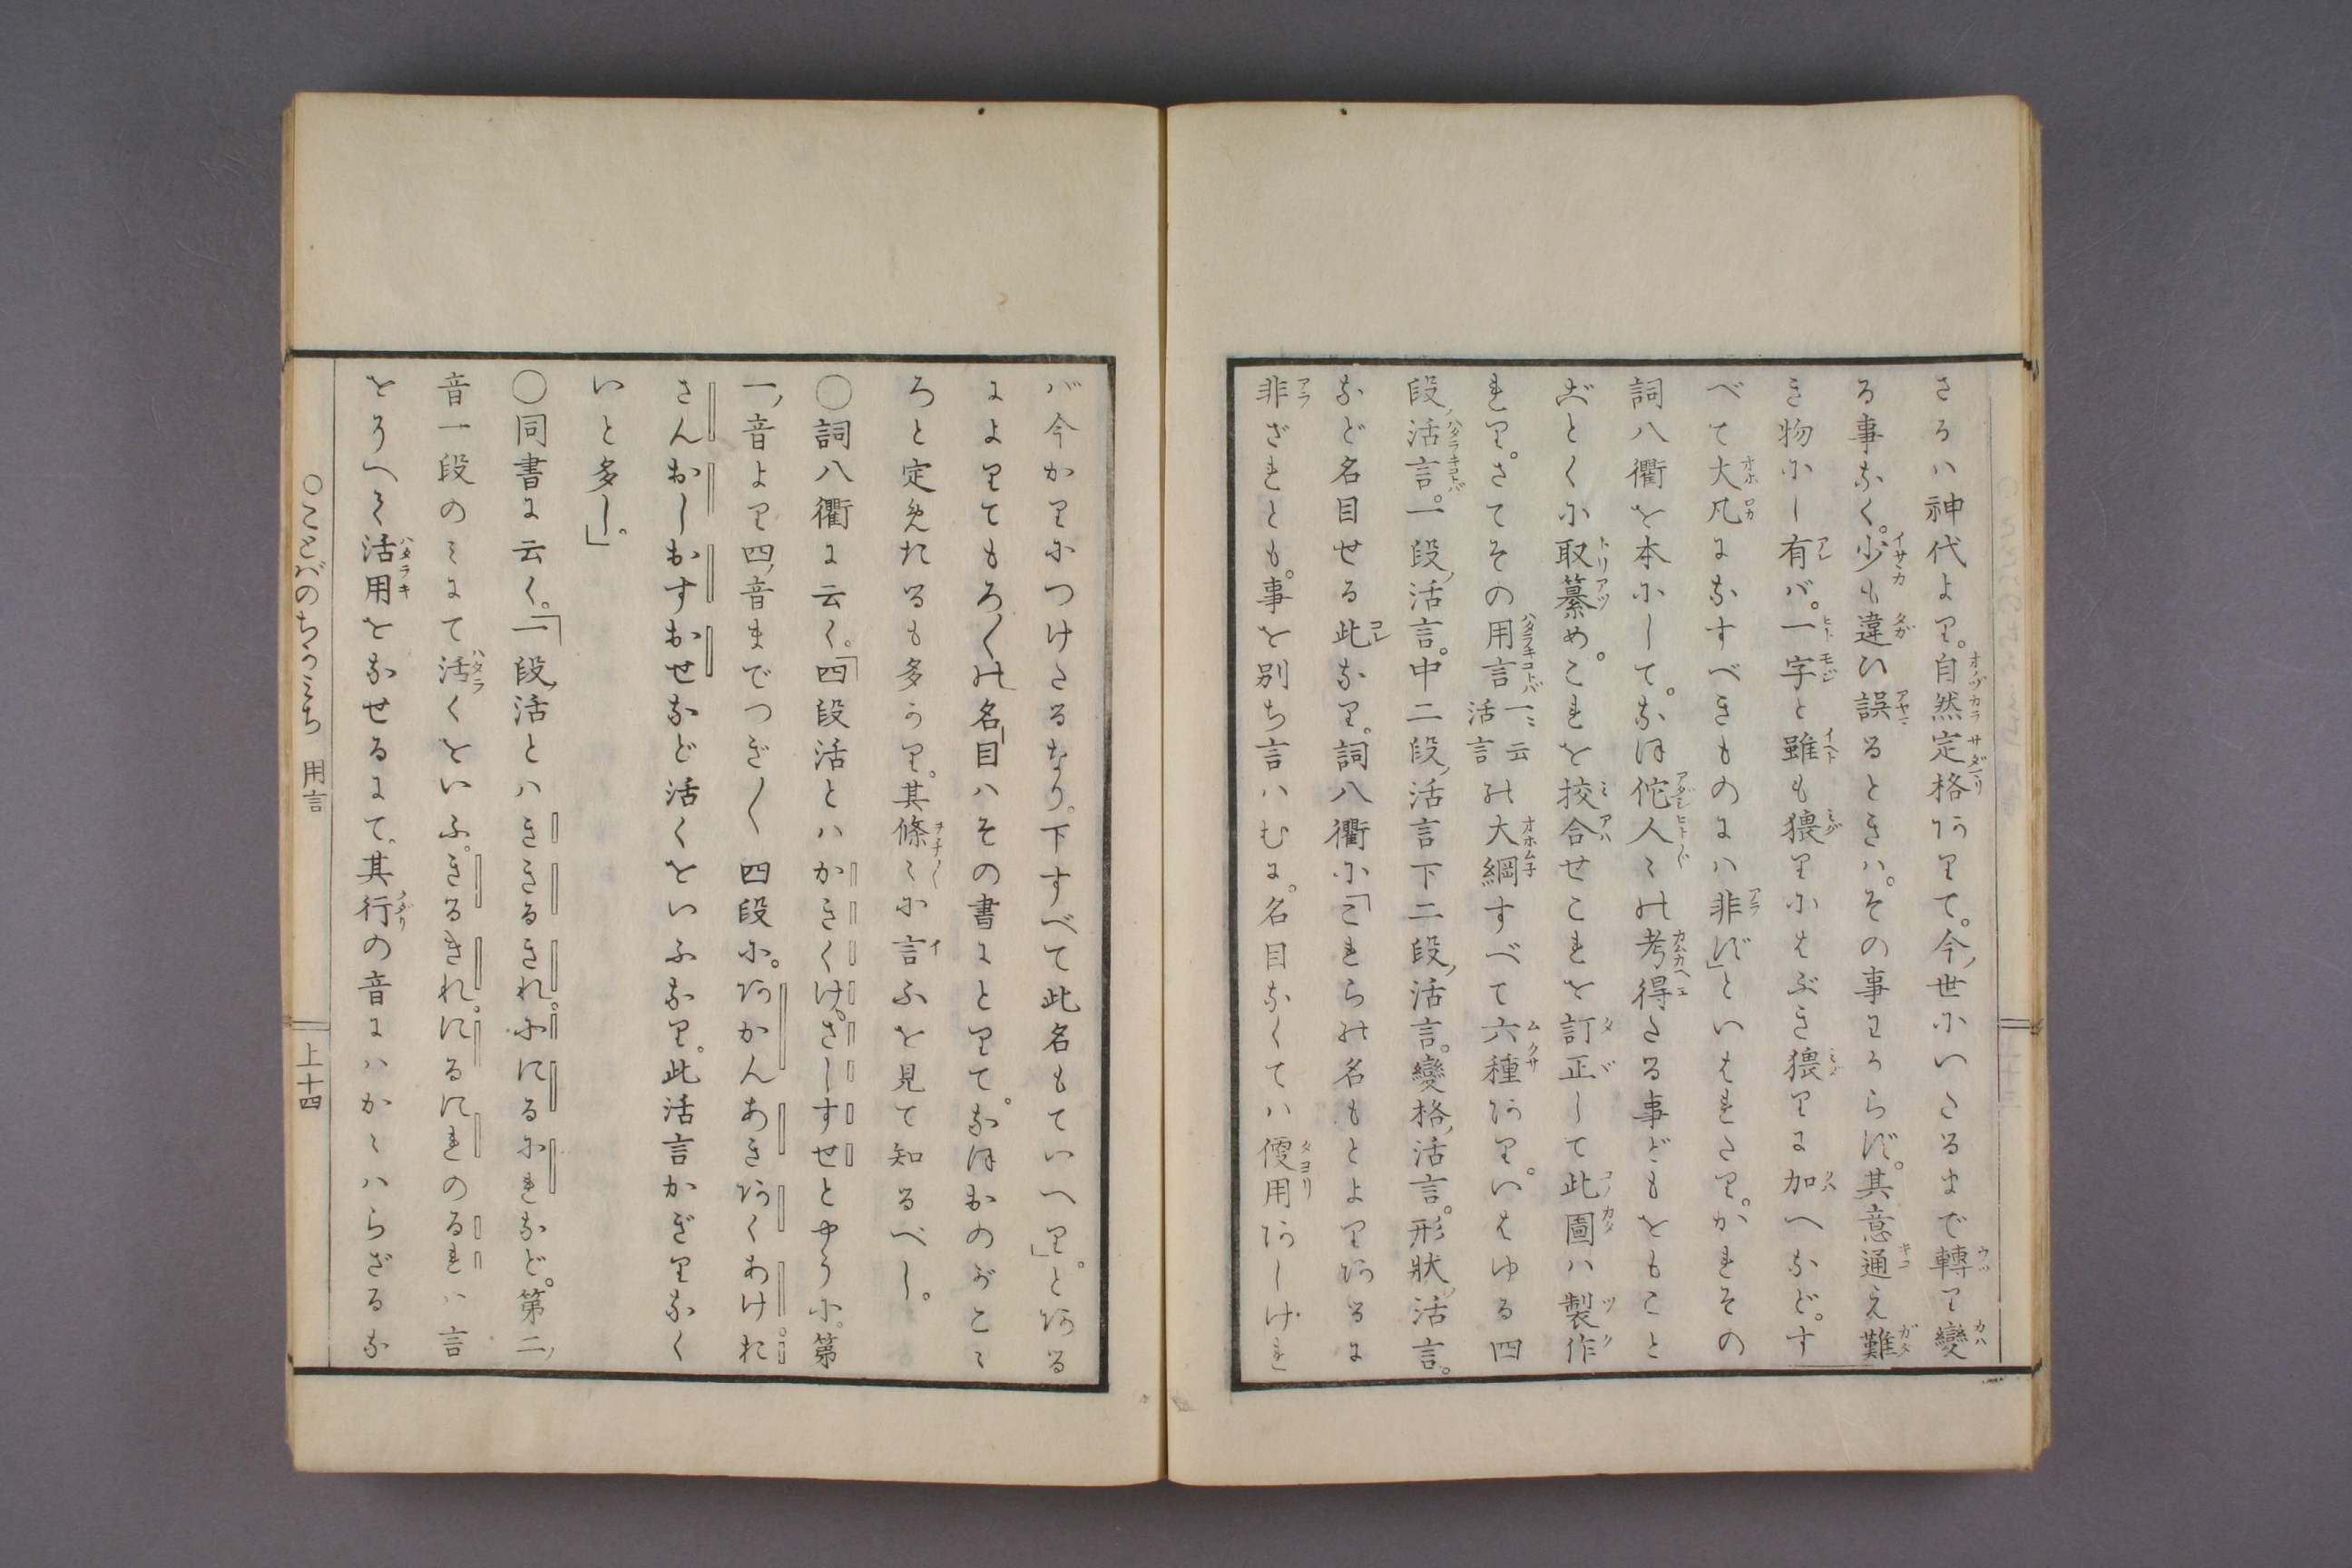 さるハ神代より。自然定格ありて。今ノ世にいたるまで轉り變
る事なく。少も違ひ誤るときハ。その事わからず。其意通え難
き物にし有バ。一字と雖も猥りにはぶき猥りに加へなど。す
べて大凡になすべきものにハ非ず」といはれたり。かれその
詞八衢を本にして。なほ佗人〻の考得たる事どもをもこと
ごとくに取纂め。これを挍合せこれを訂正して此圖ハ製作
れり。さてその用言一ニ云活言の大綱すべて六種あり。いはゆる四
段ノ活言。一段ノ活言。中二段ノ活言下二段ノ活言。變格ノ活言。形狀ノ活言。
など名目せる此なり。詞八衢に「これらの名もとよりあるに
非ざれとも。事を別ち言ハむに。名目なくてハ便用あしけれ
バ今かりにつけたるなり。下すべて此名もていへり。」とある
によりてもろ〳〵の名目ハその書にとりて。なほおのがこゝ
ろと定めたるも多かり。其條〻に言ふを見て知るべし。
〇詞八衢に云く。「四段活とハかきくけ。さしすせとやうに。第
一ノ音より四ノ音までつぎ〳〵四段に。あかんあきあくあけれ。
さんおしおすおせなど活くをいふなり。此活言かぎりなく
いと多し。」
〇同書に云く。「一段ノ活とハききるきれ。ににるにれなど。第二ノ
音一段のミにて活くをいふ。きるきれ。にるにれのるれハ言
をうへく活用をなせるにて。其行の音にハかゝハらざるな
〇ことばのちかミち 用言 上十四